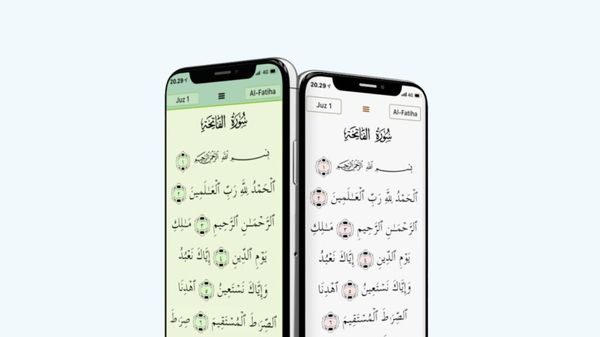 20.29 4G
Juz 1 ≡ Al-Fatiha
سُورَةُ ٱلْفَاتِحَةِ
بِسْمِ ٱللَّهِ ٱلرَّحْمَٰنِ ٱلرَّحِيمِ ١
ٱلْحَمْدُ لِلَّهِ رَبِّ ٱلْعَـٰلَمِينَ ٢
ٱلرَّحْمَـٰنِ ٱلرَّحِيمِ ٣ مَـٰلِكِ
يَوْمِ ٱلدِّينِ ٤ إِيَّاكَ نَعْبُدُ
وَإِيَّاكَ نَسْتَعِينُ ٥ ٱهْدِنَا
ٱلصِّرَٰطَ ٱلْمُسْتَقِيمَ ٦ صِرَٰطَ
20.29 4G
Juz 1 ≡ Al-Fatiha
سُورَةُ ٱلْفَاتِحَةِ
بِسْمِ ٱللَّهِ ٱلرَّحْمَٰنِ ٱلرَّحِيمِ ١
ٱلْحَمْدُ لِلَّهِ رَبِّ ٱلْعَـٰلَمِينَ ٢
ٱلرَّحْمَـٰنِ ٱلرَّحِيمِ ٣ مَـٰلِكِ
يَوْمِ ٱلدِّينِ ٤ إِيَّاكَ نَعْبُدُ
وَإِيَّاكَ نَسْتَعِينُ ٥ ٱهْدِنَا
ٱلصِّرَٰطَ ٱلْمُسْتَقِيمَ ٦